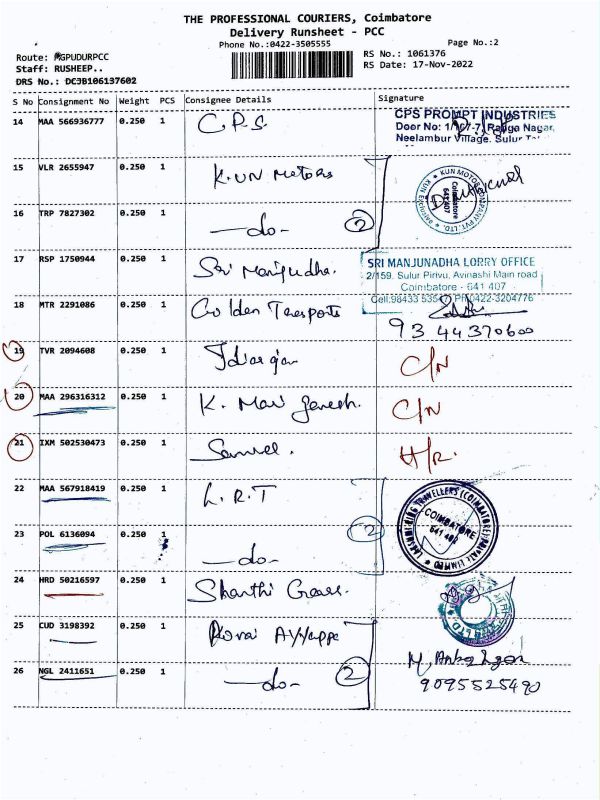 THE PROFESSIONAL COURIERS, Coimbatore
Delivery Runsheet - PCC
Phone No.:0422-3505555 Page No.:2
Route: GPUDURPCC RS No.: 1061376
Staff: RUSHEEP.. RS Date: 17-Nov-2022
DRS No.: DC3B106137602
S No Consignment No Weight PCS Consignee Details Signature
14 MAA 566936777 0.250 1 C.P.S. CPS PROMPT INDUSTRIES
Door No: Ranga Nagar,
Neelambur Village. Sulur
15 VLR 2655947 0.250 1 K.UN Motors
KUN MOTOR COMPANY PVT. LTD.
Coimbatore
641 407
16 TRP 7827302 0.250 1 -do- 2
17 RSP 1750944 0.250 1 Sri Manjudha. SRI MANJUNADHA LORRY OFFICE
2/159. Sulur Pirivu, Avinashi Main road
Coimbatore - 641 407
Ph:0422-3204776
18 MTR 2291086 0.250 1 Golden Tansports
93 44370600
19 TVR 2094608 0.250 1 C/N
20 MAA 296316312 0.250 1 K. Mari ganesh. C/N
21 IXM 502530473 0.250 1 H/R.
22 MAA 567918419 0.250 1 L.R.T
COIMBATORE
641 402
23 POL 6136094 0.250 1 -do- 2
24 HRD 50216597 0.250 1 Shanthi Gears.
25 CUD 3198392 0.250 1 Kovai Ayyappa
26 NGL 2411651 0.250 1 -do- 2
9095525490